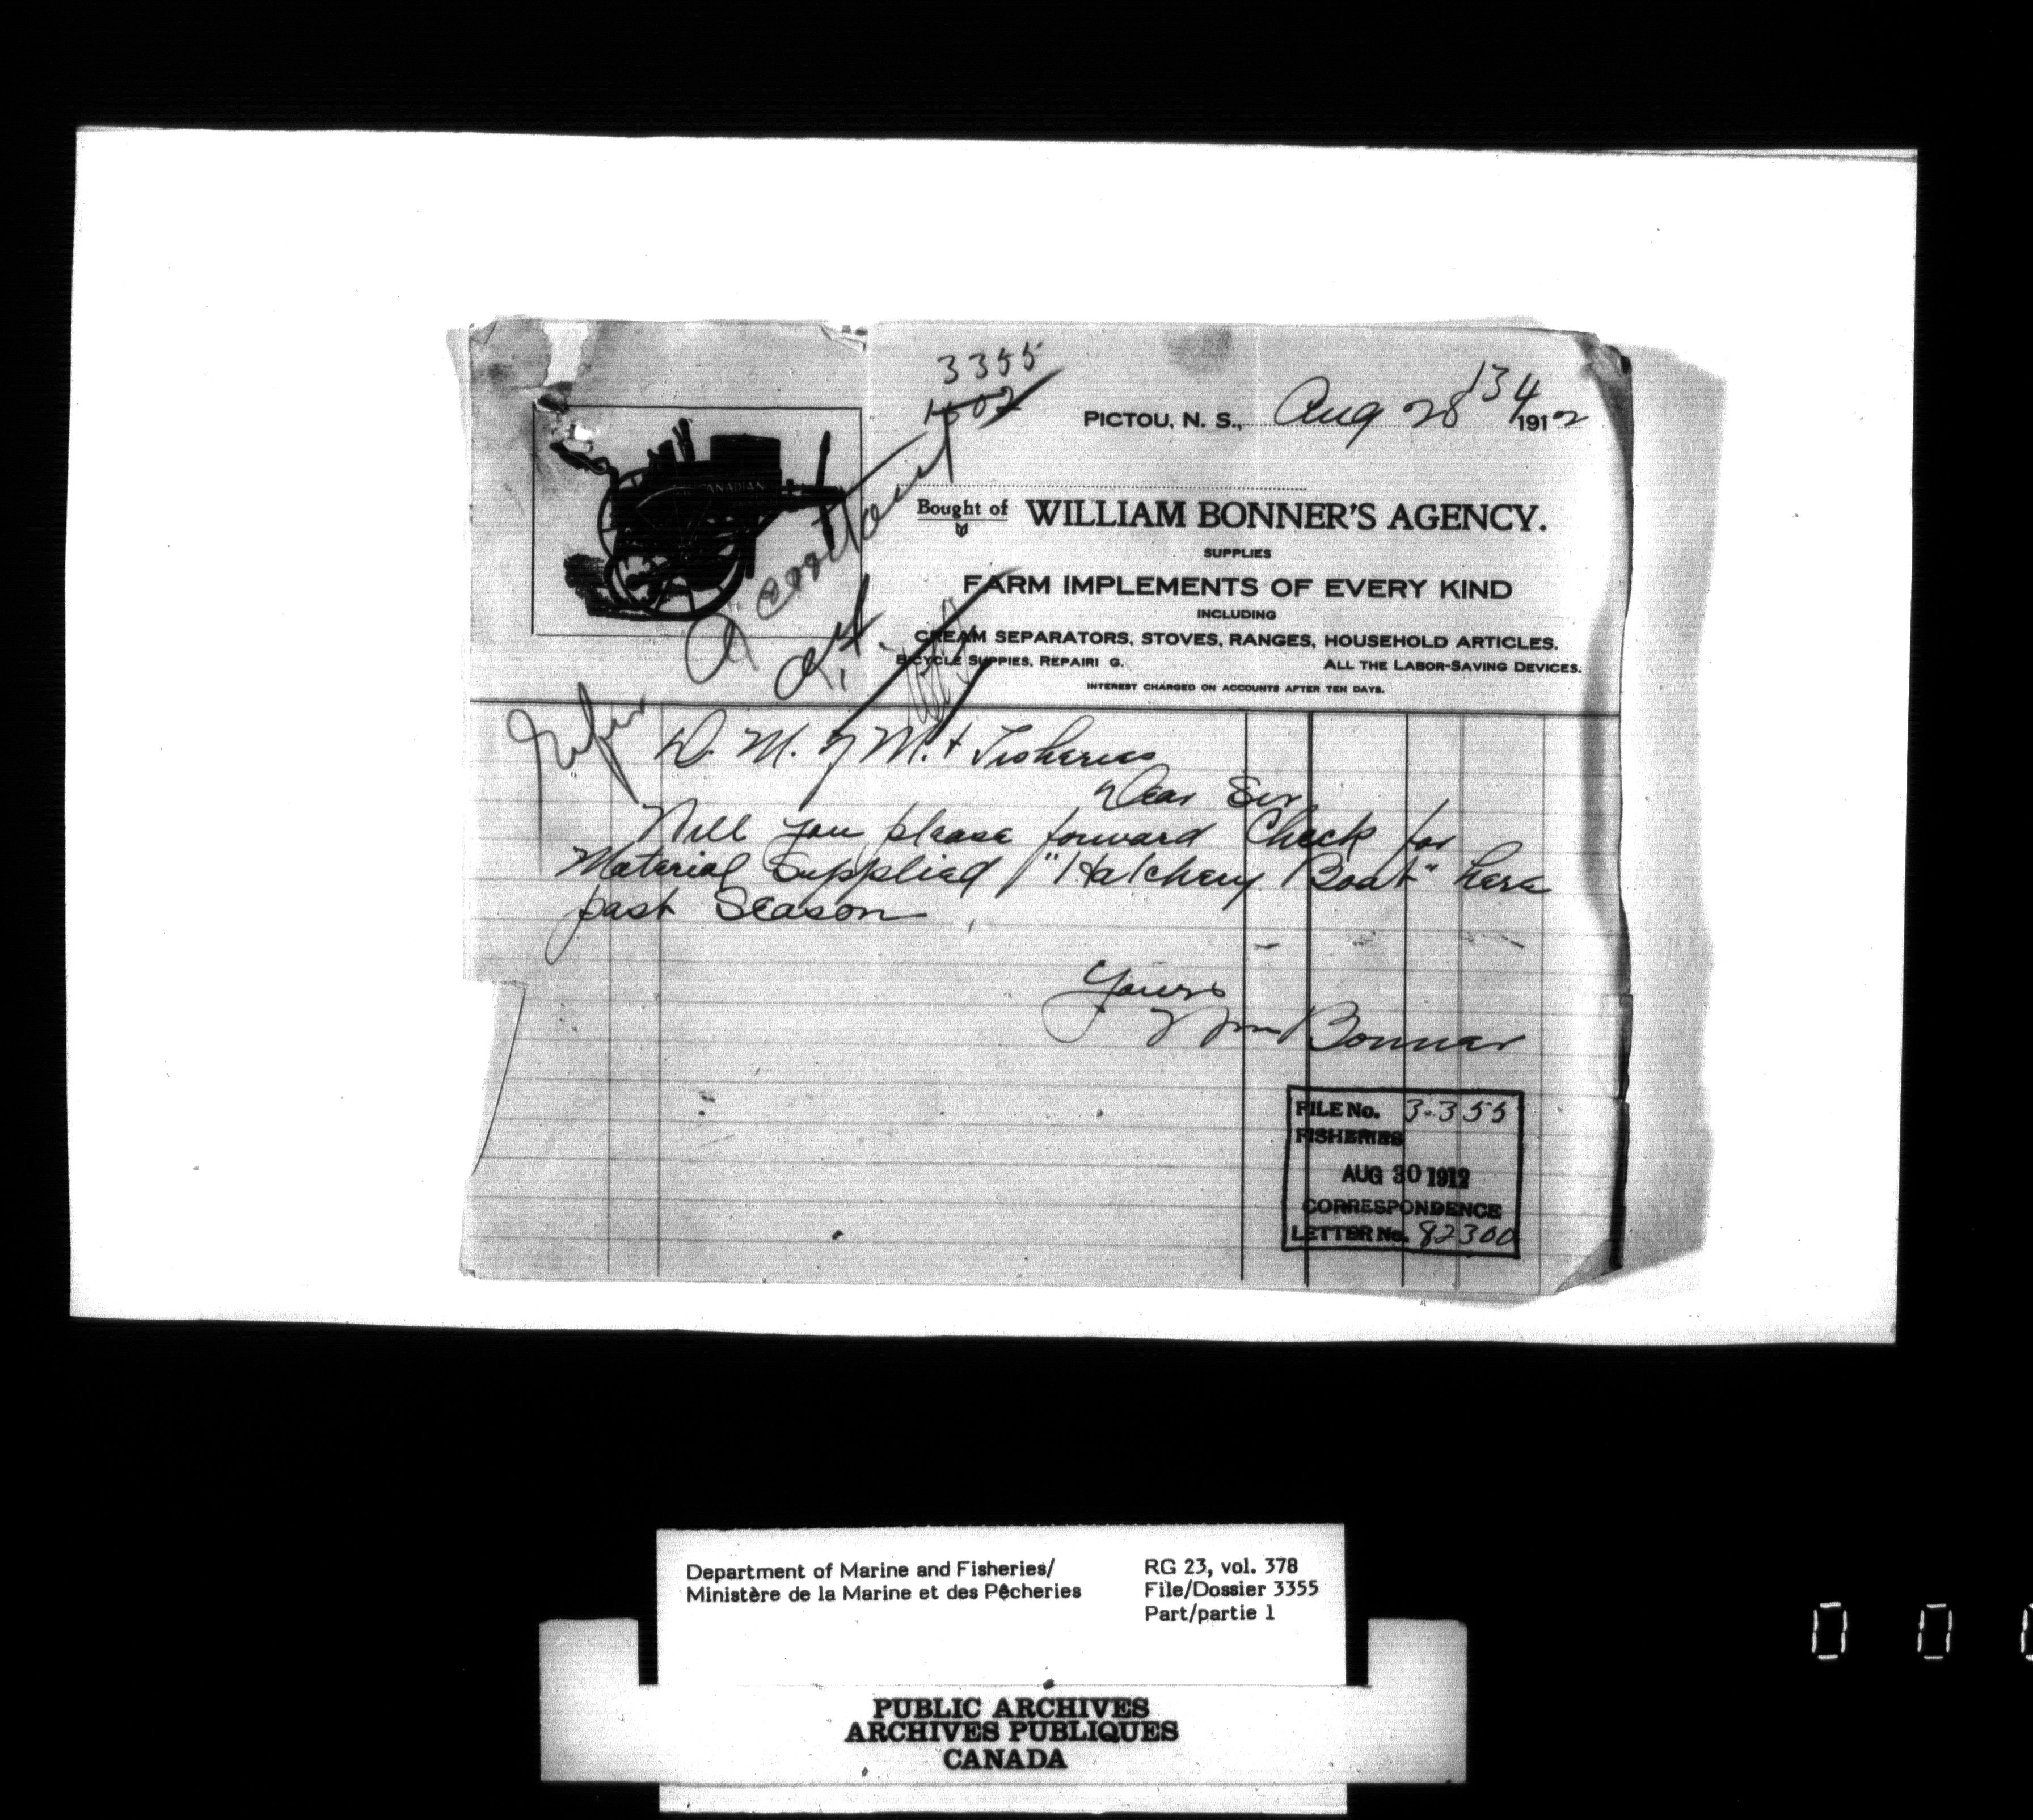 3355
1602
134
PICTOU, N. S., Aug 28 1912
CANADIAN
Bought of WILLIAM BONNER'S AGENCY.
SUPPLIES
FARM IMPLEMENTS OF EVERY KIND
INCLUDING
CREAM SEPARATORS, STOVES, RANGES, HOUSEHOLD ARTICLES.
BICYCLE SUPPIES, REPAIRI G. ALL THE LABOR-SAVING DEVICES.
INTEREST CHARGED ON ACCOUNTS AFTER TEN DAYS.
Accountant
D. M. of M. + Fisheries
Dear Sir
Will you please forward Check for
Material Supplied "Hatchery Boat" here
past Season
Yours
Wm Bonner
FILE No. 3355
FISHERIES
AUG 30 1912
CORRESPONDENCE
LETTER No. 82300
Department of Marine and Fisheries/
Ministère de la Marine et des Pêcheries
RG 23, vol. 378
File/Dossier 3355
Part/partie 1
PUBLIC ARCHIVES
ARCHIVES PUBLIQUES
CANADA
0 0